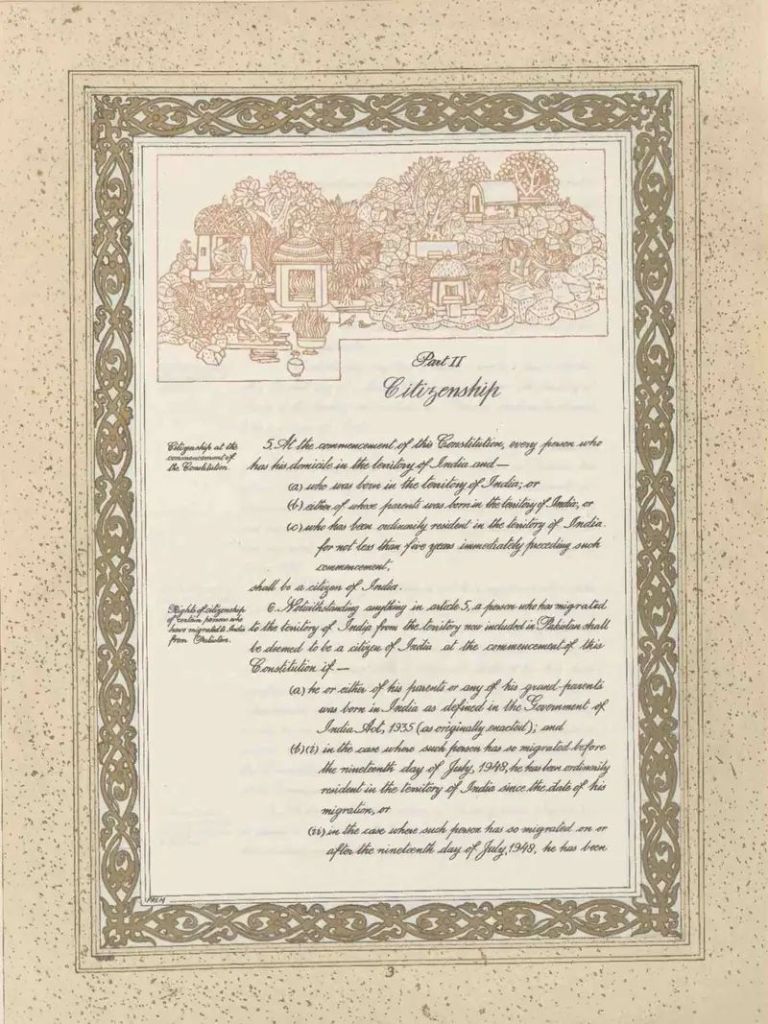 Part II
Citizenship
Citizenship at the
commencement of
the Constitution
5. At the commencement of this Constitution, every person who
has his domicile in the territory of India and —
(a) who was born in the territory of India; or
(b) either of whose parents was born in the territory of India; or
(c) who has been ordinarily resident in the territory of India
for not less than five years immediately preceding such
commencement,
shall be a citizen of India.
Rights of citizenship
of certain persons who
have migrated to India
from Pakistan.
6. Notwithstanding anything in article 5, a person who has migrated
to the territory of India from the territory now included in Pakistan shall
be deemed to be a citizen of India at the commencement of this
Constitution if —
(a) he or either of his parents or any of his grand-parents
was born in India as defined in the Government of
India Act, 1935 (as originally enacted); and
(b)(i) in the case where such person has so migrated before
the nineteenth day of July, 1948, he has been ordinarily
resident in the territory of India since the date of his
migration, or
(ii) in the case where such person has so migrated on or
after the nineteenth day of July, 1948, he has been
PREM
3